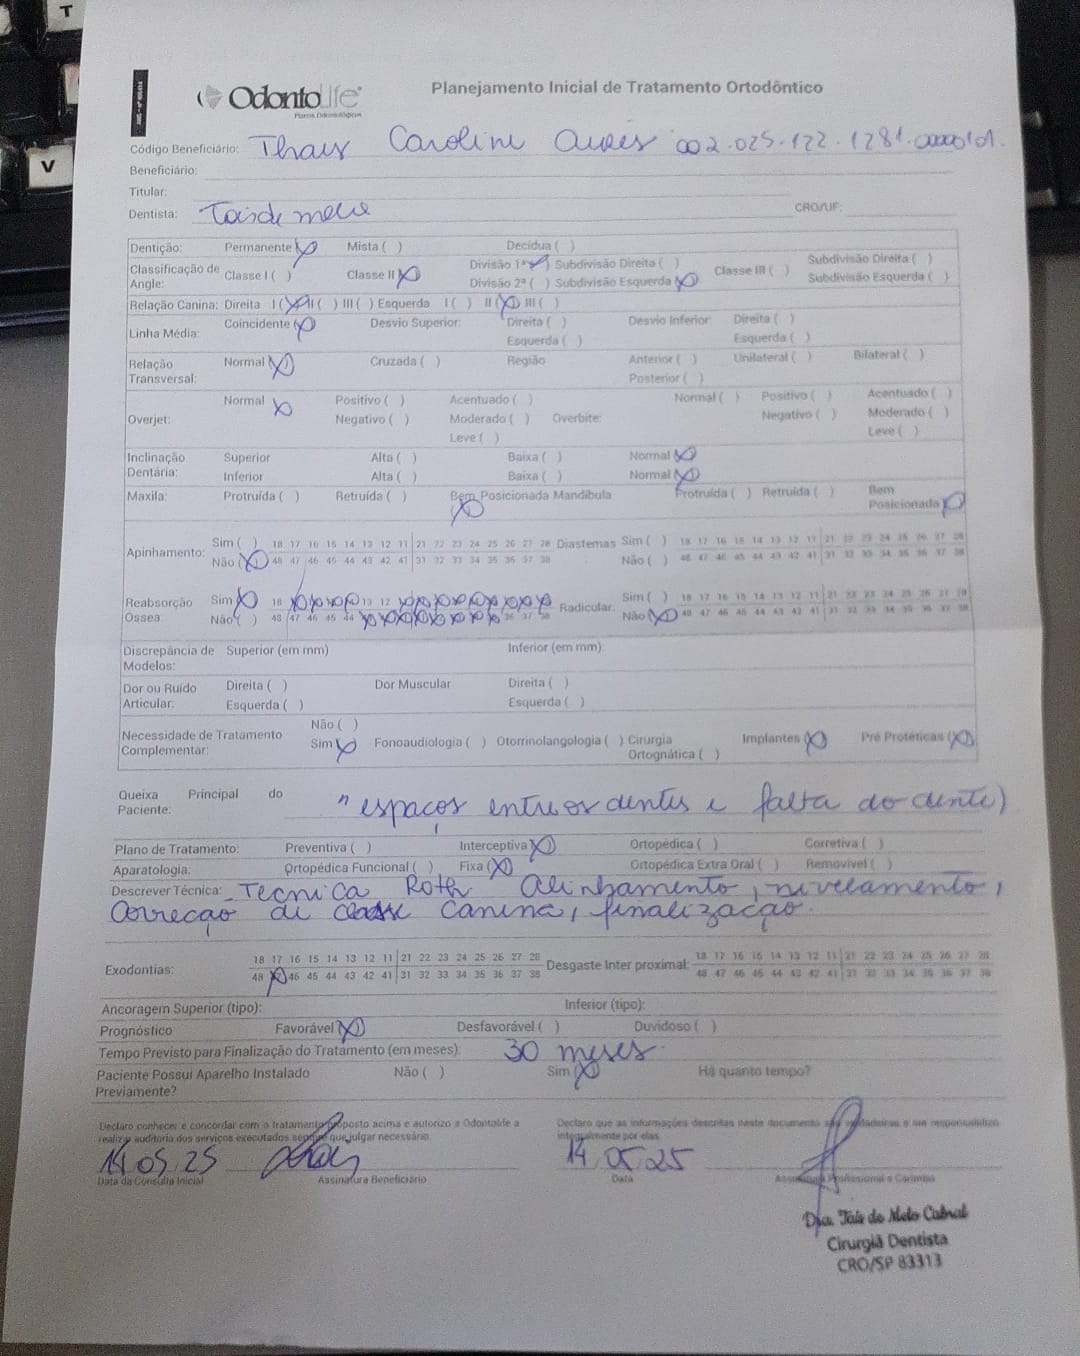 T
V
OdontoLife
Planos Odontológicos
Planejamento Inicial de Tratamento Ortodôntico
Código Beneficiário: Thais Caroline Aures 002.025.122.1281.0000101.
Beneficiário:
Titular:
Dentista: Taisde melo CRO/UF:
Dentição: Permanente (X) Mista ( ) Decídua ( )
Classificação de Angle: Classe I ( ) Classe II (X) Divisão 1ª (X) Subdivisão Direita ( ) Classe III ( ) Subdivisão Direita ( )
Divisão 2ª ( ) Subdivisão Esquerda (X) Subdivisão Esquerda ( )
Relação Canina: Direita I (X) II ( ) III ( ) Esquerda I ( ) II (X) III ( )
Linha Média: Coincidente (X) Desvio Superior: Direita ( ) Desvio Inferior Direita ( )
Esquerda ( ) Esquerda ( )
Relação Transversal: Normal (X) Cruzada ( ) Região Anterior ( ) Unilateral ( ) Bilateral ( )
Posterior ( )
Overjet: Normal X Positivo ( ) Acentuado ( ) Overbite: Normal ( ) Positivo ( ) Acentuado ( )
Negativo ( ) Moderado ( ) Negativo ( ) Moderado ( )
Leve ( ) Leve ( )
Inclinação Dentária: Superior Alta ( ) Baixa ( ) Normal (X)
Inferior Alta ( ) Baixa ( ) Normal (X)
Maxila: Protruída ( ) Retruída ( ) Bem Posicionada (X) Mandíbula Protruída ( ) Retruída ( ) Bem Posicionada (X)
Apinhamento: Sim ( ) 18 17 16 15 14 13 12 11 21 22 23 24 25 26 27 28 Diastemas Sim ( ) 18 17 16 15 14 13 12 11 21 22 23 24 25 26 27 28
Não (X) 48 47 46 45 44 43 42 41 31 32 33 34 35 36 37 38 Não ( ) 48 47 46 45 44 43 42 41 31 32 33 34 35 36 37 38
Reabsorção Óssea: Sim (X) 18 13 12 Radicular: Sim ( ) 18 17 16 15 14 13 12 11 21 22 23 24 25 26 27 28
Não ( ) 48 47 46 45 44 36 37 38 Não (X) 48 47 46 45 44 43 42 41 31 32 33 34 35 36 37 38
Discrepância de Modelos: Superior (em mm) Inferior (em mm):
Dor ou Ruído Articular: Direita ( ) Dor Muscular Direita ( )
Esquerda ( ) Esquerda ( )
Necessidade de Tratamento Complementar: Não ( )
Sim (X) Fonoaudiologia ( ) Otorrinolangologia ( ) Cirurgia Ortognática ( ) Implantes (X) Pré Protéticas (X)
Queixa Principal do Paciente: "espaços entre os dentes e falta do dente)
Plano de Tratamento: Preventiva ( ) Interceptiva (X) Ortopédica ( ) Corretiva ( )
Aparatologia: Ortopédica Funcional ( ) Fixa (X) Ortopédica Extra Oral ( ) Removível ( )
Descrever Técnica: Tecnica Roth Alinhamento, nivelamento,
correção de classe canina, finalização.
Exodontias: 18 17 16 15 14 13 12 11 21 22 23 24 25 26 27 28 Desgaste Inter proximal: 18 17 16 15 14 13 12 11 21 22 23 24 25 26 27 28
48 X 46 45 44 43 42 41 31 32 33 34 35 36 37 38 48 47 46 45 44 43 42 41 31 32 33 34 35 36 37 38
Ancoragem Superior (tipo): Inferior (tipo):
Prognóstico Favorável (X) Desfavorável ( ) Duvidoso ( )
Tempo Previsto para Finalização do Tratamento (em meses): 30 meses.
Paciente Possuí Aparelho Instalado Previamente? Não ( ) Sim (X) Há quanto tempo?
Declaro conhecer e concordar com o tratamento proposto acima e autorizo a Odontolife a Declaro que as informações descritas neste documento são verdadeiras e me responsabilizo
realizar auditoria dos serviços executados sempre que julgar necessário. integralmente por elas.
14 05 25 Thais 14 05.25
Data da Consulta Inicial Assinatura Beneficiário Data Assinatura Profissional e Carimbo
Dra. Taís de Melo Cabral
Cirurgiã Dentista
CRO/SP 83313